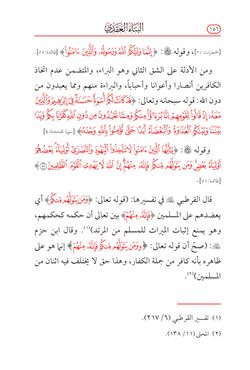 ١٥٦
البناء العقدي
[الحجرات: ١٠]، وقوله ﷻ: ﴿إِنَّمَا وَلِيُّكُمُ اللَّهُ وَرَسُولُهُ وَالَّذِينَ ءَامَنُوا﴾ [المائدة: ٥٥].
ومن الأدلة على الشق الثاني وهو البراء، والمتضمن عدم اتخاذ
الكافرين أنصارا وأعوانا وأحبابا، والبراءة منهم ومما يعبدون من
دون الله: قوله سبحانه وتعالى: ﴿قَدْ كَانَتْ لَكُمْ أُسْوَةٌ حَسَنَةٌ فِي إِبْرَاهِيمَ وَالَّذِينَ
مَعَهُ إِذْ قَالُوا لِقَوْمِهِمْ إِنَّا بُرَءَاؤُا مِنْكُمْ وَمِمَّا تَعْبُدُونَ مِنْ دُونِ اللَّهِ كَفَرْنَا بِكُمْ وَبَدَا
بَيْنَنَا وَبَيْنَكُمُ الْعَدَاوَةُ وَالْبَغْضَاءُ أَبَدًا حَتَّى تُؤْمِنُوا بِاللَّهِ وَحْدَهُ﴾ [سورة الممتحنة: ٤]
وقوله ﷻ: ﴿يَاأَيُّهَا الَّذِينَ ءَامَنُوا لَا تَتَّخِذُوا الْيَهُودَ وَالنَّصَارَى أَوْلِيَاءَ بَعْضُهُمْ
أَوْلِيَاءُ بَعْضٍ وَمَنْ يَتَوَلَّهُمْ مِنْكُمْ فَإِنَّهُ مِنْهُمْ إِنَّ اللَّهَ لَا يَهْدِي الْقَوْمَ الظَّالِمِينَ﴾
[المائدة: ٥١].
قال القرطبي في تفسيرها: (قوله تعالى: ﴿وَمَنْ يَتَوَلَّهُمْ مِنْكُمْ﴾ أي
يعضدهم على المسلمين ﴿فَإِنَّهُ مِنْهُمْ﴾ بين تعالى أن حكمه كحكمهم،
وهو يمنع إثبات الميراث للمسلم من المرتد)(١). وقال ابن حزم
: (صح أن قوله تعالى: ﴿وَمَنْ يَتَوَلَّهُمْ مِنْكُمْ فَإِنَّهُ مِنْهُمْ﴾ إنما هو على
ظاهره بأنه كافر من جملة الكفار، وهذا حق لا يختلف فيه اثنان من
المسلمين)(٢).
(١) تفسير القرطبي (٦/ ٢١٧).
(٢) المحلى (١١/ ١٣٨).